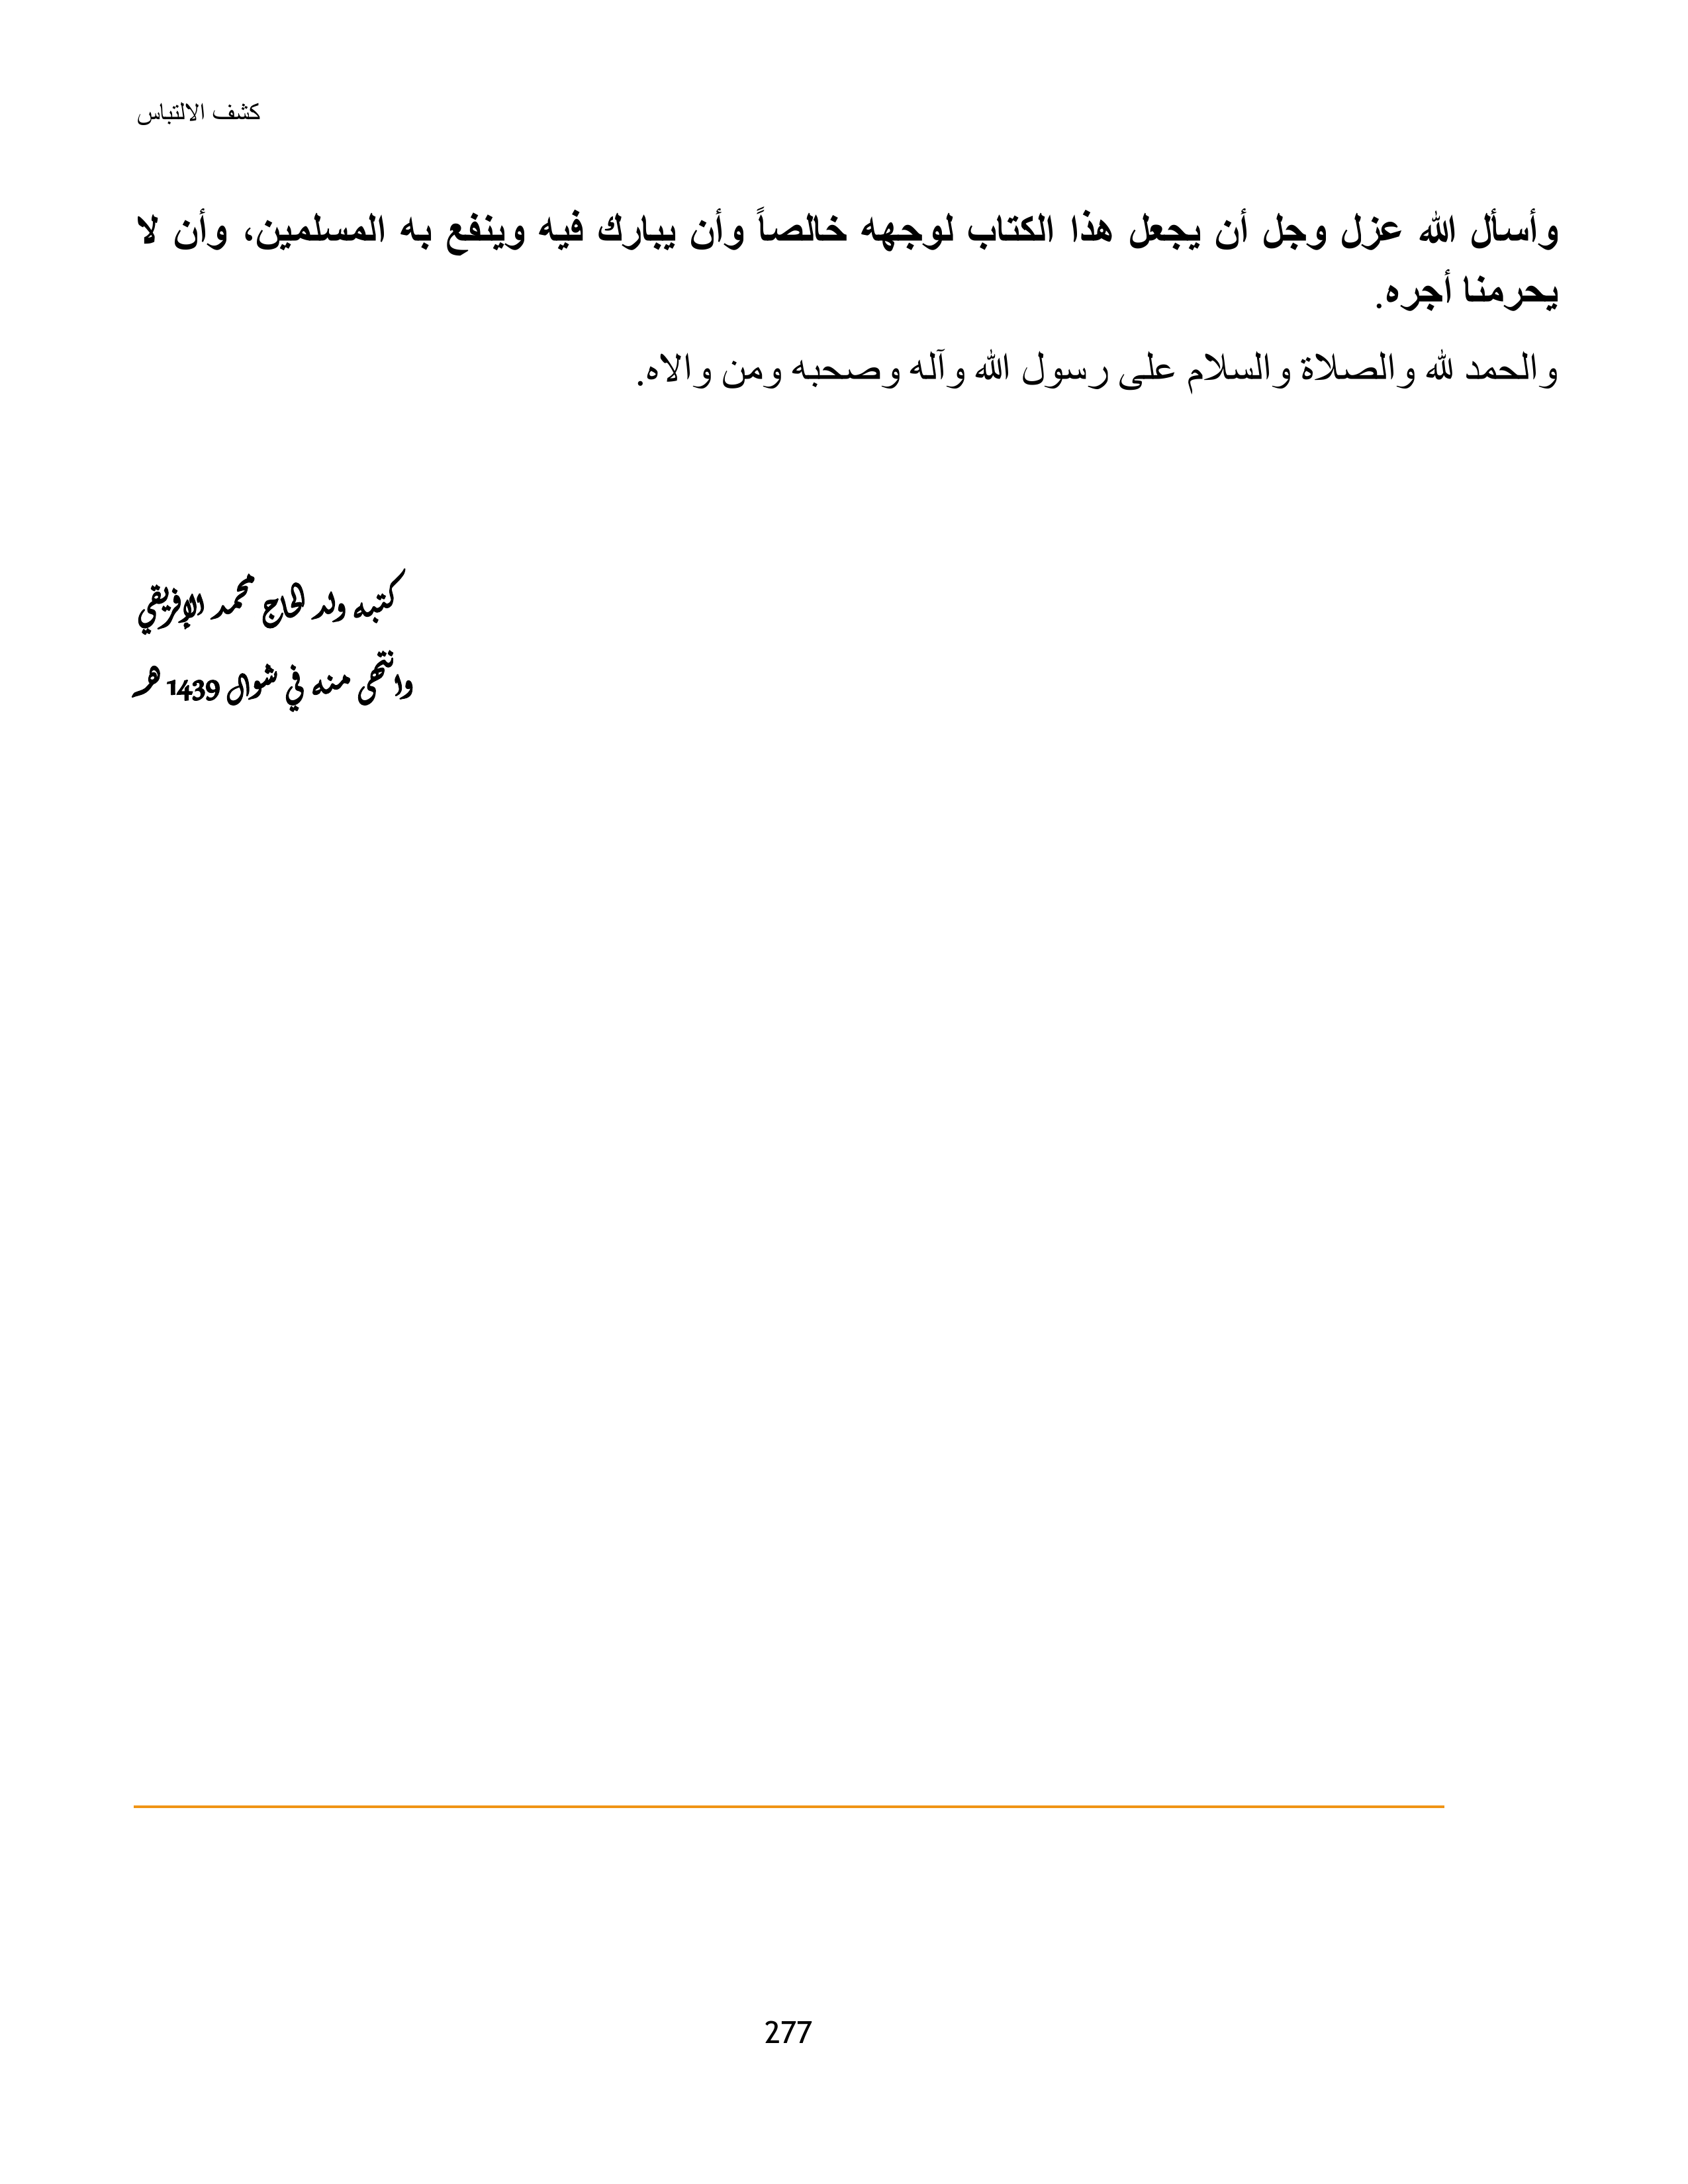 كشف الالتباس
وأسأل الله عزل وجل أن يجعل هذا الكتاب لوجهه خالصاً وأن يبارك فيه وينفع به المسلمين، وأن لا
يحرمنا أجره.
والحمد لله والصلاة والسلام على رسول الله وآله وصحبه ومن والاه.
كتبه ولد الحاج محمد الإفريقي
وانتهى منه في شوال 1439 هـ
277